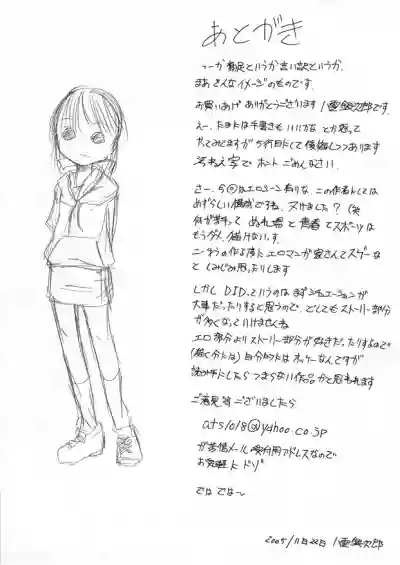 あとがき
つーか補足というか言い訳というか、
まあそんなイメージのものです。
お買いあげありがとうございます 八重銀次郎です。
えー、たまには手書きもいいかな とか思って
やってみてますが 5行目にして後悔しつつあります
汚ねえ字で ホント ごめんなさい。
さー、今回はエロシーン有りな、この作者にしては
めずらしい構成ですね。ヌけました?(笑)
濡れ場と青春とスポーツは
もうダメ。描けないす。
こーゆうの作る度にエロマンガ家さんてスゲーな
としみじみ思ったりします
しかし D.I.D.というのは まずシチュエーションが
大事だったりすると思うので、どしてもストーリー部分
が多くなっていけませんね
エロ部分よりストーリー部分が好きだったりするので
(描く分には)自分的にはオッケーなんですが
にしたらつまらない作品かと思われます
ご意見、等ございましたら
ats1018@yahoo.co.jp
が苦情メール受付用アドレスなので
お気軽にドゾ
では では〜
2005/11月22日 八重銀次郎